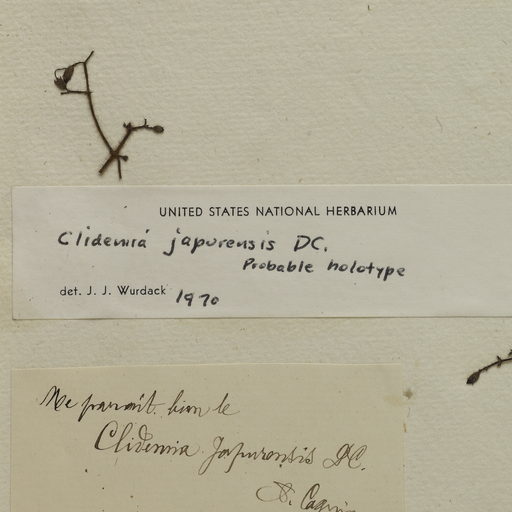 UNITED STATES NATIONAL HERBARIUM
Clidemia japurensis DC.
Probable holotype
det. J. J. Wurdack 1970
Me parait bien le
Clidemia Japurensis DC.